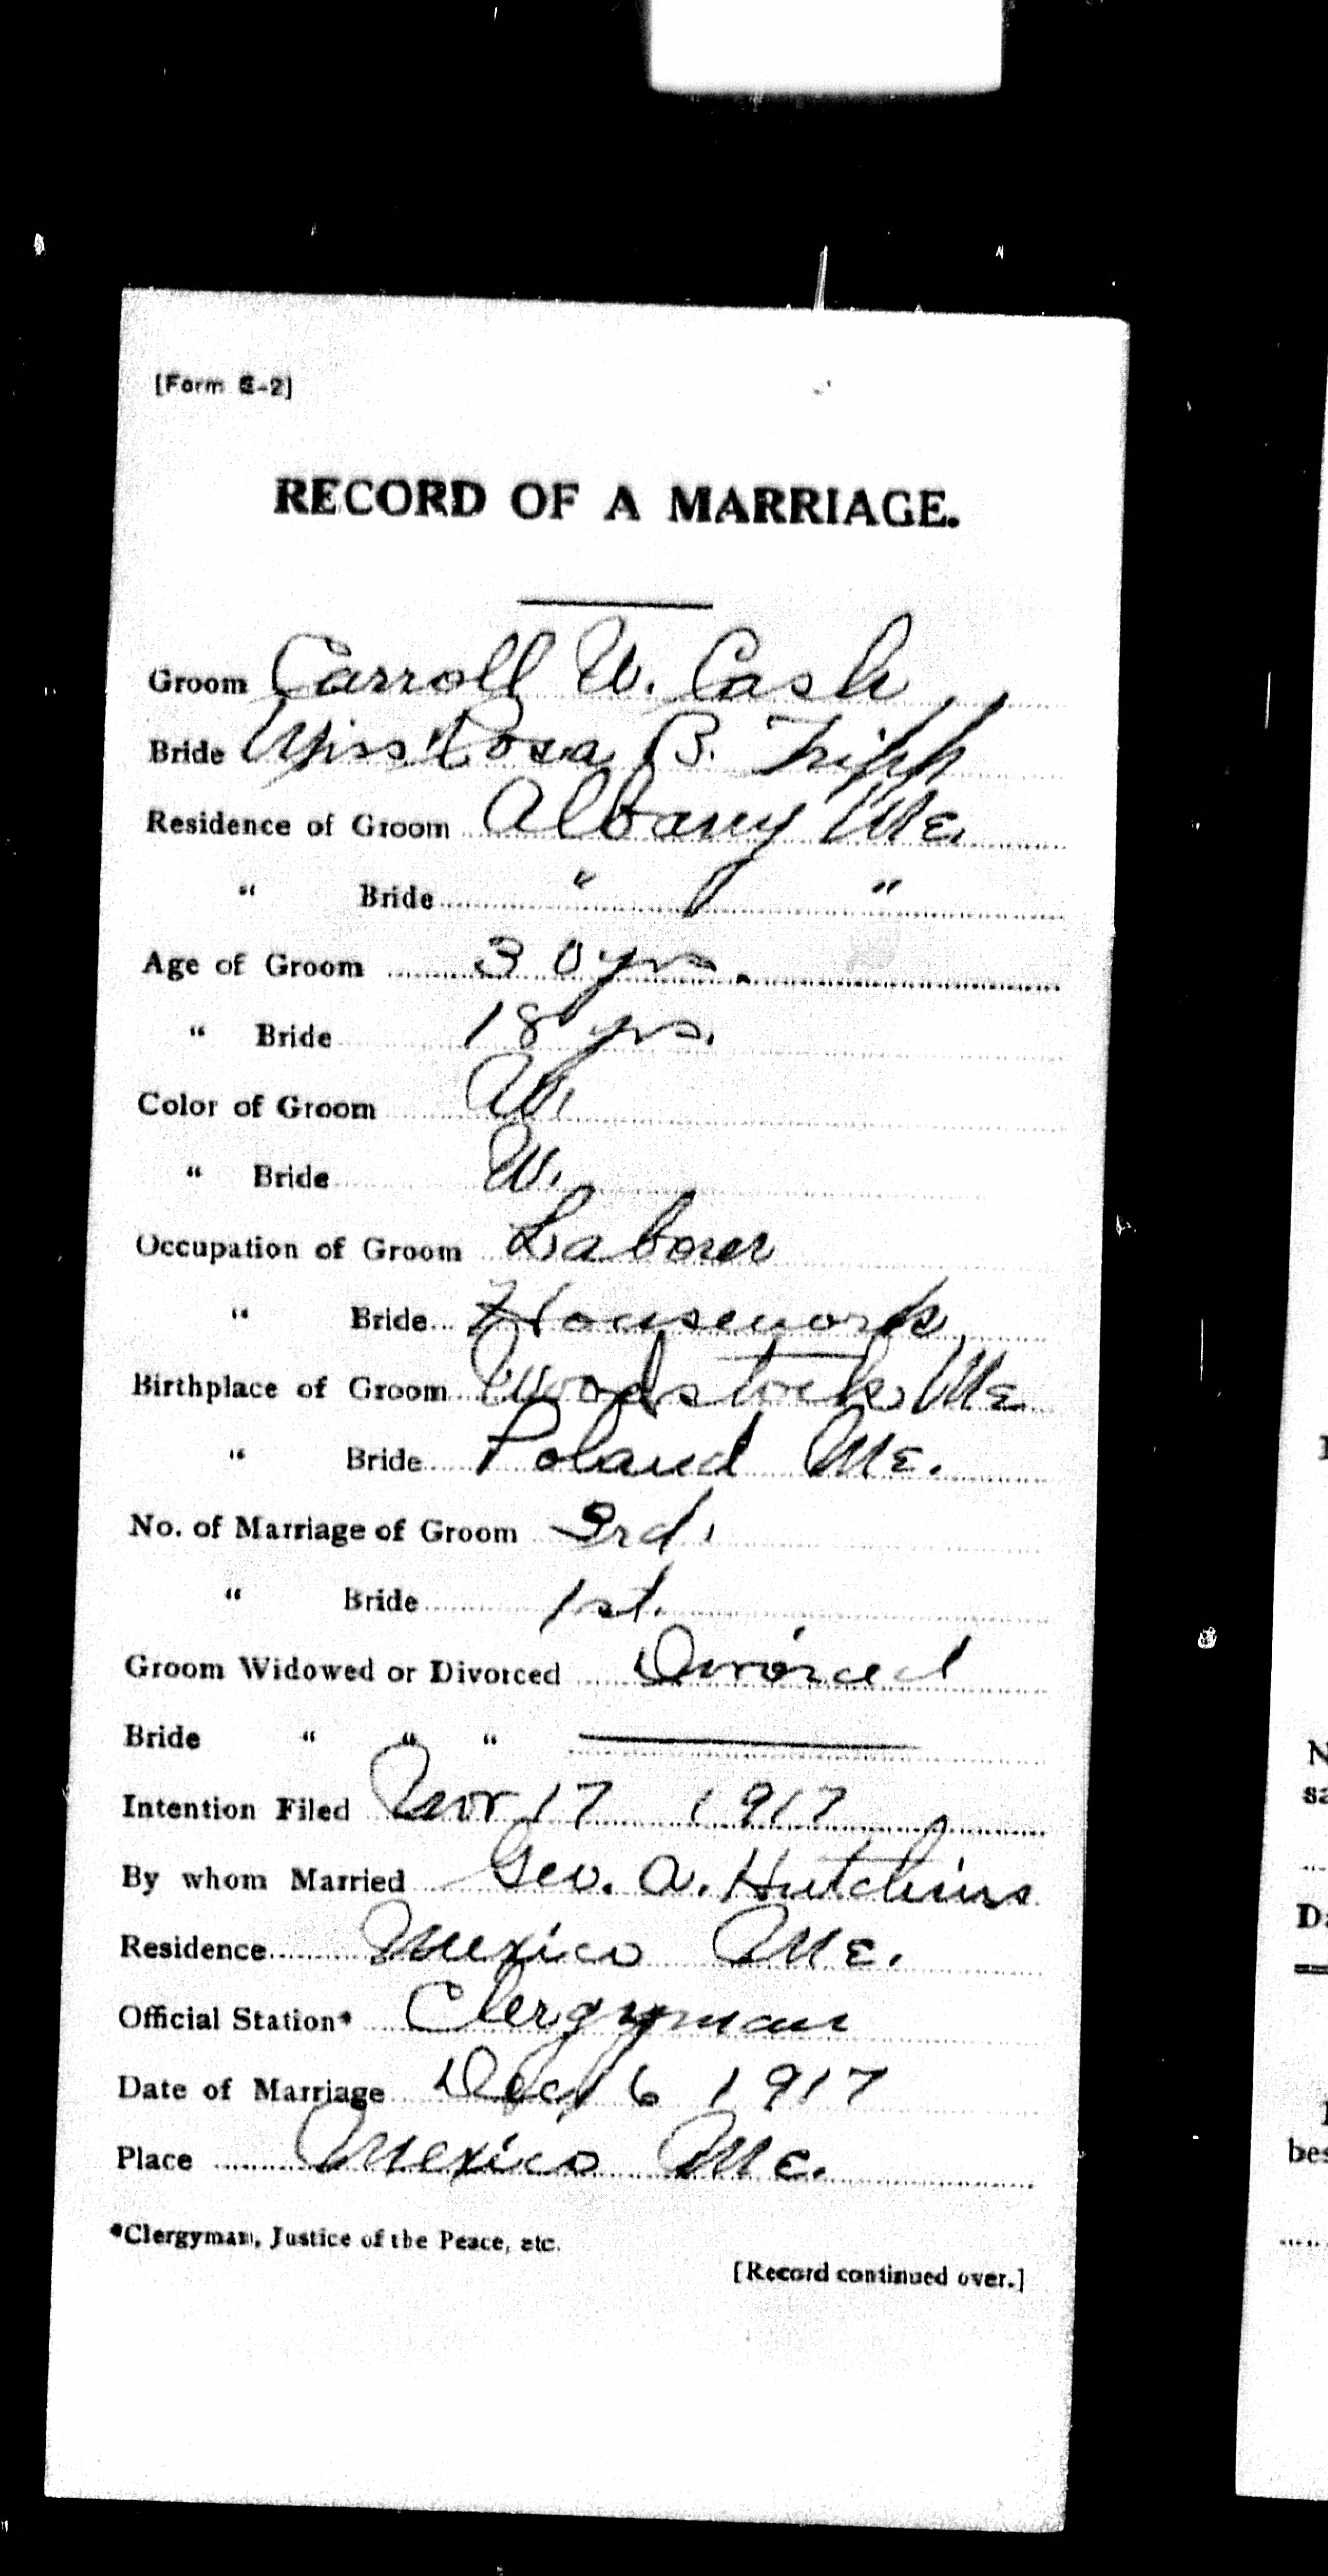 [Form C-2]
RECORD OF A MARRIAGE.
Groom Carroll W. Cash
Bride Miss Rosa B. Tripp
Residence of Groom Albany Me.
" Bride " "
Age of Groom 30 yrs.
" Bride 18 yrs.
Color of Groom W.
" Bride W.
Occupation of Groom Laborer
" Bride Housework
Birthplace of Groom Woodstock Me
" Bride Poland Me.
No. of Marriage of Groom 3rd.
" Bride 1st.
Groom Widowed or Divorced Divorced
Bride " " "
Intention Filed Nov 17 1917
By whom Married Geo. A. Hutchins
Residence Mexico Me.
Official Station* Clergyman
Date of Marriage Dec 6 1917
Place Mexico Me.
*Clergyman, Justice of the Peace, etc.
[Record continued over.]